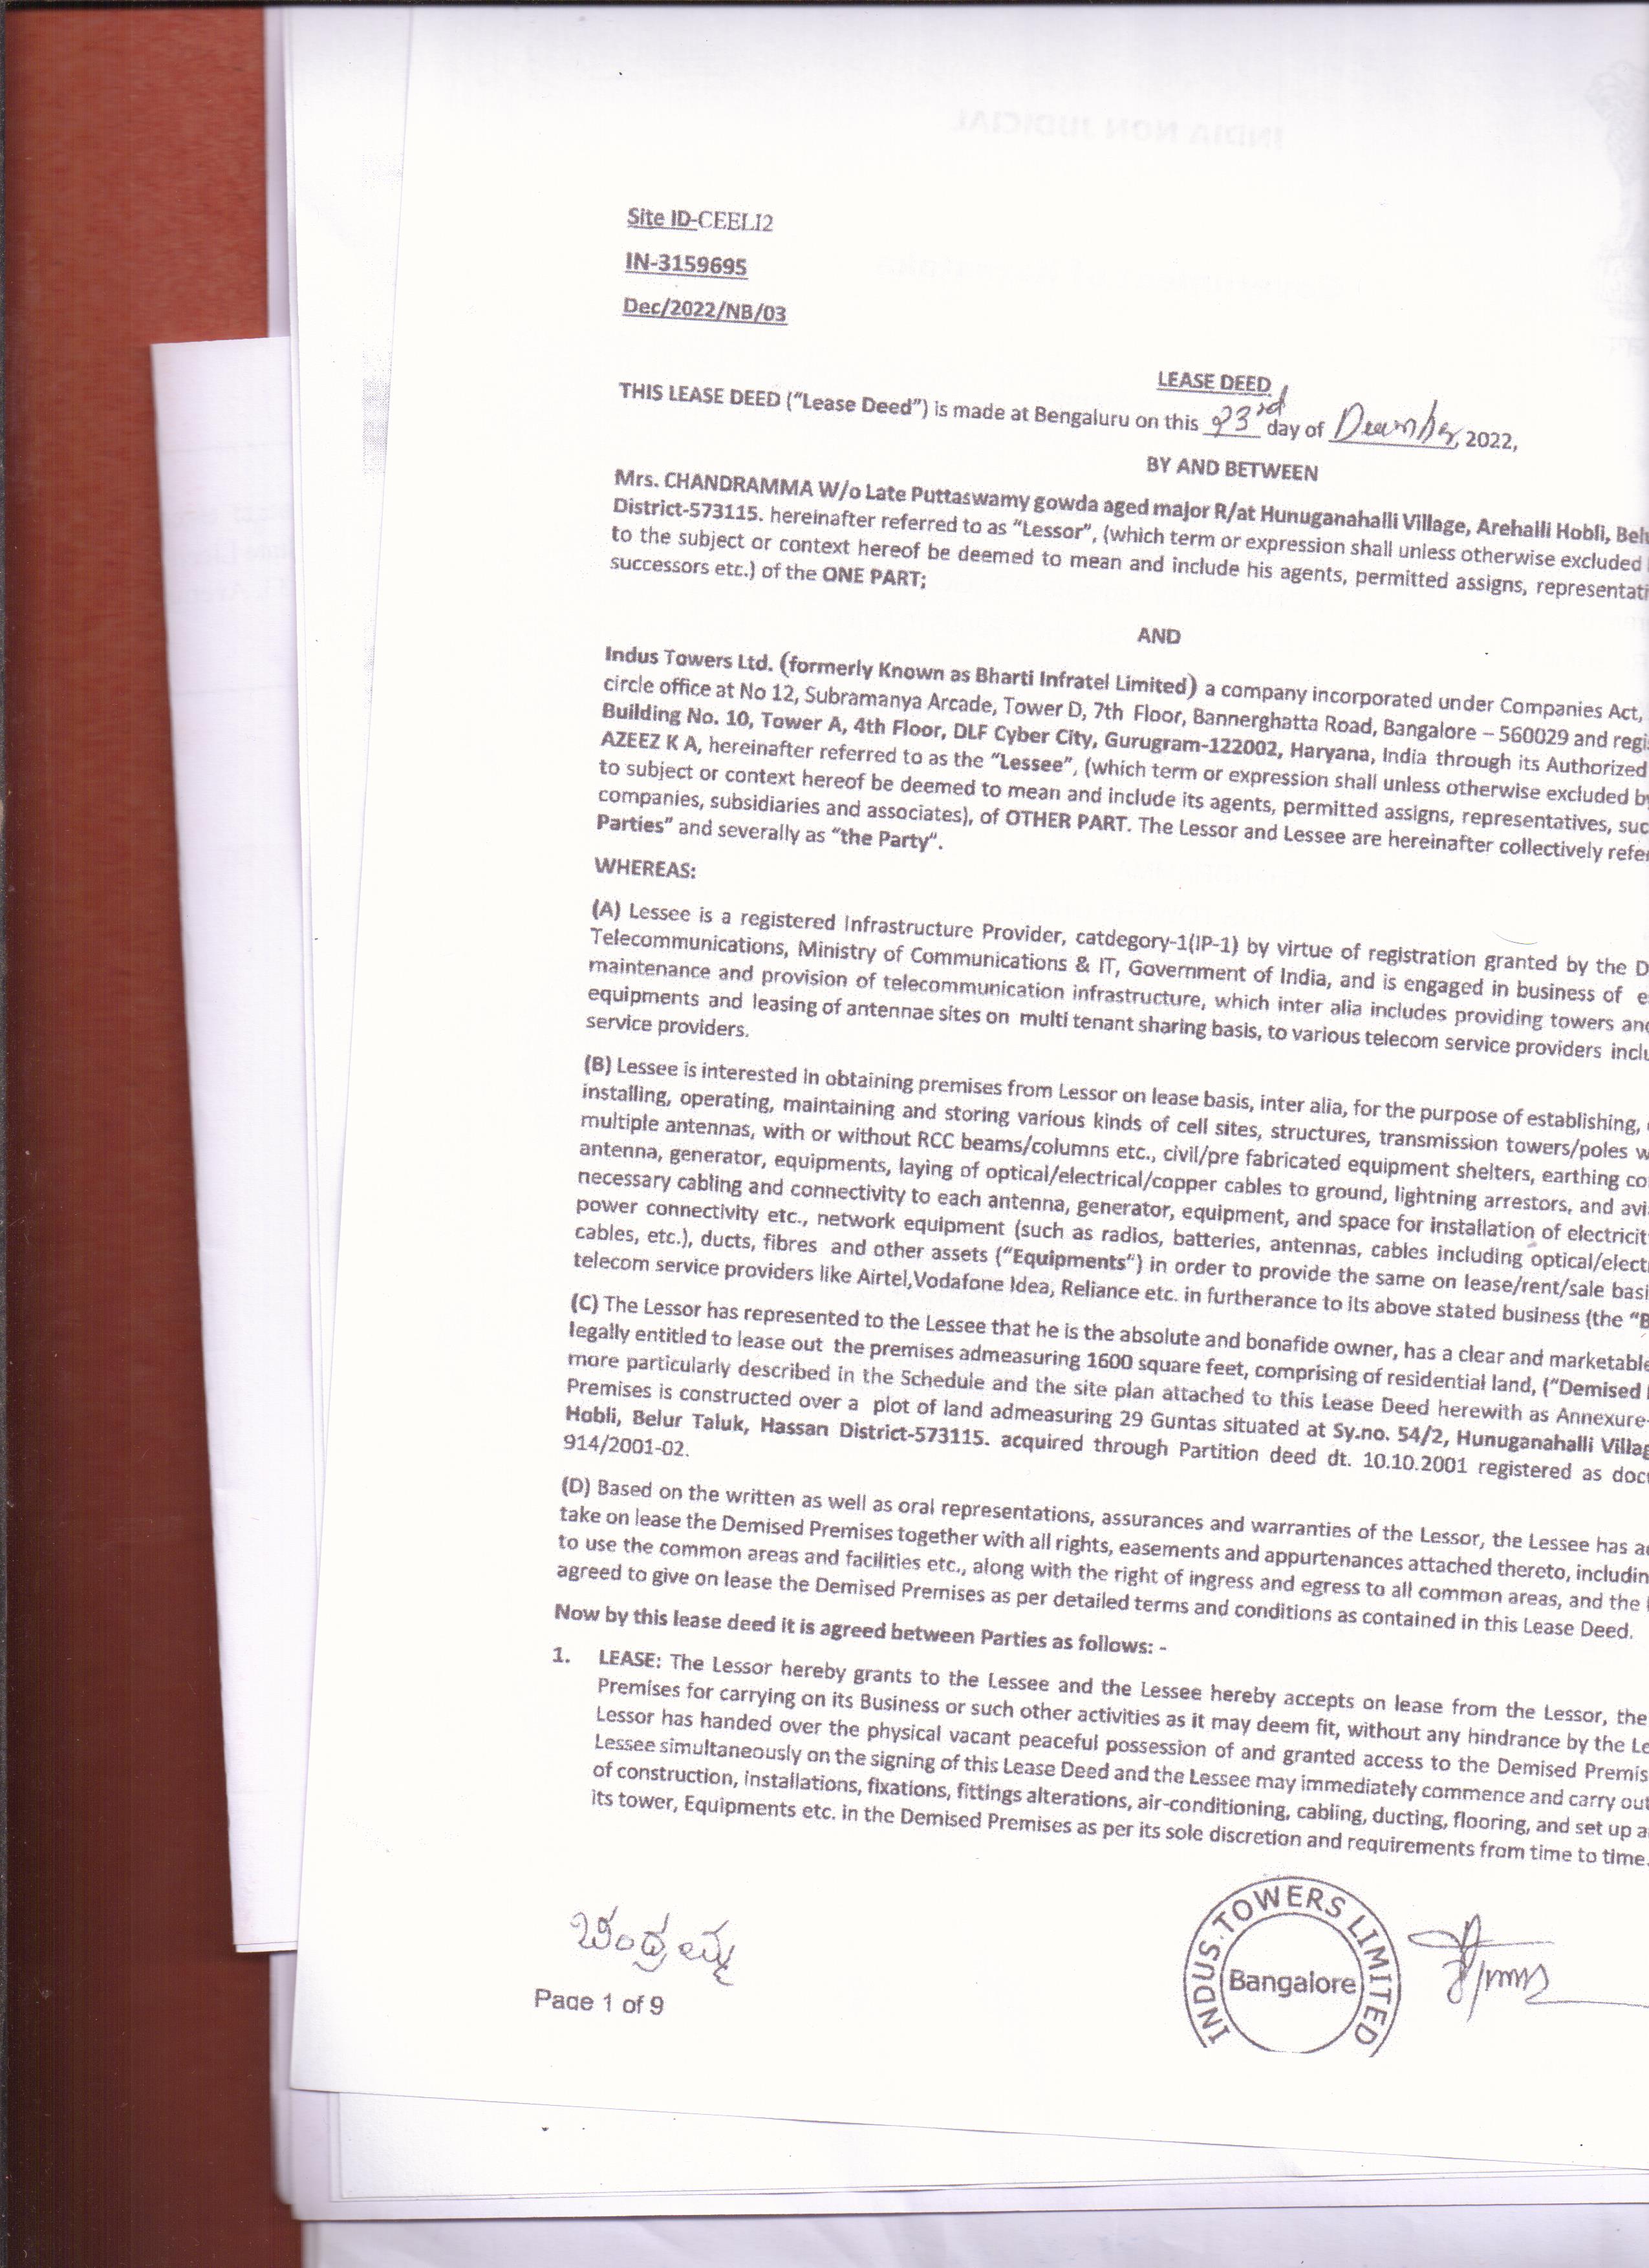 INDIA NON JUDICIAL
Site ID-CEELI2
IN-3159695
Dec/2022/NB/03
LEASE DEED
THIS LEASE DEED (“Lease Deed”) is made at Bengaluru on this 23rd day of December, 2022,
BY AND BETWEEN
Mrs. CHANDRAMMA W/o Late Puttaswamy gowda aged major R/at Hunuganahalli Village, Arehalli Hobli,
District-573115. hereinafter referred to as “Lessor”, (which term or expression shall unless otherwise excluded
to the subject or context hereof be deemed to mean and include his agents, permitted assigns,
successors etc.) of the ONE PART;
AND
Indus Towers Ltd. (formerly Known as Bharti Infratel Limited) a company incorporated under Companies Act,
circle office at No 12, Subramanya Arcade, Tower D, 7th Floor, Bannerghatta Road, Bangalore – 560029 and
Building No. 10, Tower A, 4th Floor, DLF Cyber City, Gurugram-122002, Haryana, India through its Authorized
AZEEZ K A, hereinafter referred to as the “Lessee”, (which term or expression shall unless otherwise excluded
to subject or context hereof be deemed to mean and include its agents, permitted assigns, representatives,
companies, subsidiaries and associates), of OTHER PART. The Lessor and Lessee are hereinafter collectively
Parties” and severally as “the Party”.
WHEREAS:
(A) Lessee is a registered Infrastructure Provider, catdegory-1(IP-1) by virtue of registration granted by the
Telecommunications, Ministry of Communications & IT, Government of India, and is engaged in business of
maintenance and provision of telecommunication infrastructure, which inter alia includes providing towers
equipments and leasing of antennae sites on multi tenant sharing basis, to various telecom service providers
service providers.
(B) Lessee is interested in obtaining premises from Lessor on lease basis, inter alia, for the purpose of establishing,
installing, operating, maintaining and storing various kinds of cell sites, structures, transmission towers/poles
multiple antennas, with or without RCC beams/columns etc., civil/pre fabricated equipment shelters, earthing
antenna, generator, equipments, laying of optical/electrical/copper cables to ground, lightning arrestors, and
necessary cabling and connectivity to each antenna, generator, equipment, and space for installation of
power connectivity etc., network equipment (such as radios, batteries, antennas, cables including
cables, etc.), ducts, fibres and other assets (“Equipments”) in order to provide the same on lease/rent/sale
telecom service providers like Airtel,Vodafone Idea, Reliance etc. in furtherance to its above stated business (the
(C) The Lessor has represented to the Lessee that he is the absolute and bonafide owner, has a clear and
legally entitled to lease out the premises admeasuring 1600 square feet, comprising of residential land, (“Demised
more particularly described in the Schedule and the site plan attached to this Lease Deed herewith as Annexure-
Premises is constructed over a plot of land admeasuring 29 Guntas situated at Sy.no. 54/2, Hunuganahalli
Hobli, Belur Taluk, Hassan District-573115. acquired through Partition deed dt. 10.10.2001 registered as
914/2001-02.
(D) Based on the written as well as oral representations, assurances and warranties of the Lessor, the Lessee has
take on lease the Demised Premises together with all rights, easements and appurtenances attached thereto,
to use the common areas and facilities etc., along with the right of ingress and egress to all common areas, and the
agreed to give on lease the Demised Premises as per detailed terms and conditions as contained in this Lease Deed.
Now by this lease deed it is agreed between Parties as follows: -
1. LEASE: The Lessor hereby grants to the Lessee and the Lessee hereby accepts on lease from the Lessor, the
Premises for carrying on its Business or such other activities as it may deem fit, without any hindrance by the
Lessor has handed over the physical vacant peaceful possession of and granted access to the Demised
Lessee simultaneously on the signing of this Lease Deed and the Lessee may immediately commence and carry out
of construction, installations, fixations, fittings alterations, air-conditioning, cabling, ducting, flooring, and set up
its tower, Equipments etc. in the Demised Premises as per its sole discretion and requirements from time to time.
ಚಂದ್ರಮ್ಮ
INDUS TOWERS LIMITED
Bangalore
Page 1 of 9